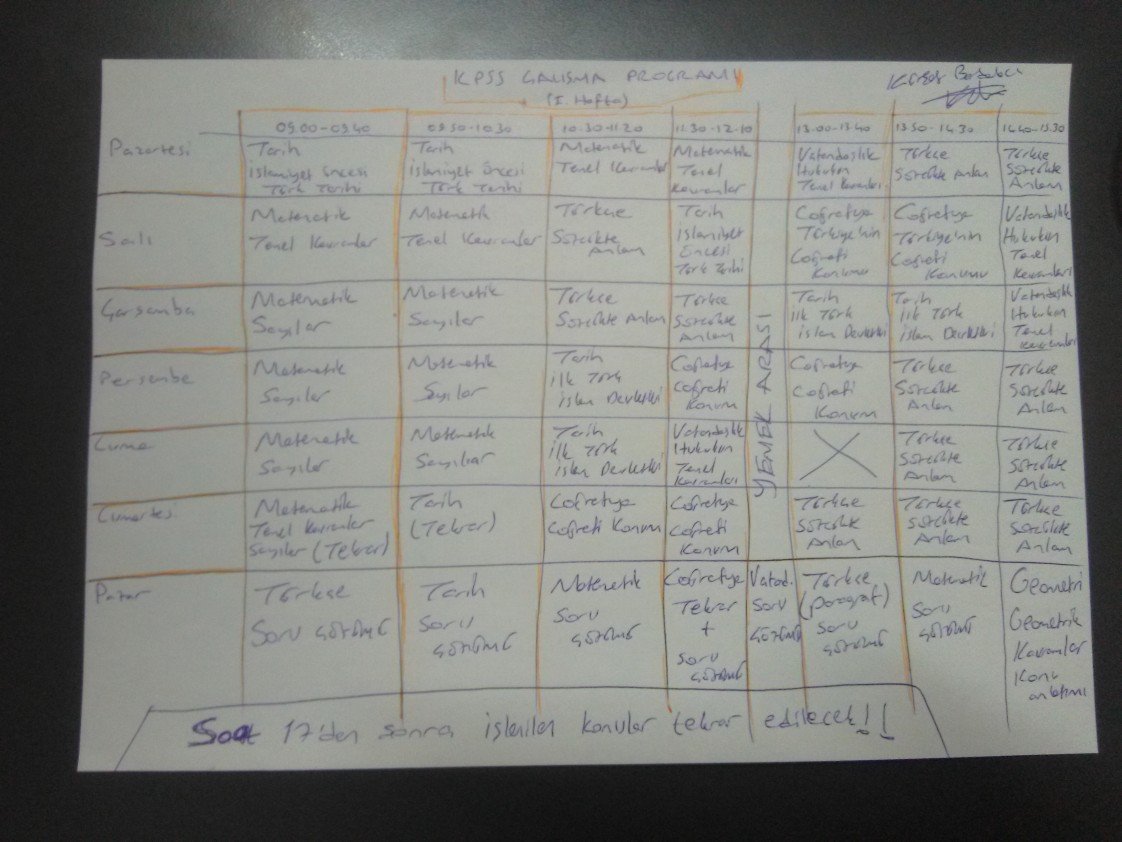 KPSS ÇALIŞMA PROGRAMI
(I. Hafta)
09.00-09.40 09.50-10.30 10.30-11.20 11.30-12.10 13.00-13.40 13.50-14.30 14.40-15.30
Pazartesi
Tarih
İslamiyet Öncesi
Türk Tarihi
Tarih
İslamiyet Öncesi
Türk Tarihi
Matematik
Temel Kavramlar
Matematik
Temel
Kavramlar
Vatandaşlık
Hukukun
Temel Kavramları
Türkçe
Sözcükte Anlam
Türkçe
Sözcükte
Anlam
Salı
Matematik
Temel Kavramlar
Matematik
Temel Kavramlar
Türkçe
Sözcükte
Anlam
Tarih
İslamiyet
Öncesi
Türk Tarihi
Coğrafya
Türkiye'nin
Coğrafi
Konumu
Coğrafya
Türkiye'nin
Coğrafi
Konumu
Vatandaşlık
Hukukun
Temel
Kavramları
Çarşamba
Matematik
Sayılar
Matematik
Sayılar
Türkçe
Sözcükte Anlam
Türkçe
Sözcükte
Anlam
Tarih
İlk Türk
İslam Devletleri
Tarih
İlk Türk
İslam Devletleri
Vatandaşlık
Hukukun
Temel
Kavramları
Perşembe
Matematik
Sayılar
Matematik
Sayılar
Tarih
İlk Türk
İslam Devletleri
Coğrafya
Coğrafi
Konum
Coğrafya
Coğrafi
Konum
Türkçe
Sözcükte
Anlam
Türkçe
Sözcükte
Anlam
Cuma
Matematik
Sayılar
Matematik
Sayılar
Tarih
İlk Türk
İslam Devletleri
Vatandaşlık
Hukukun
Temel
Kavramları
Türkçe
Sözcükte
Anlam
Türkçe
Sözcükte
Anlam
Cumartesi
Matematik
Temel Kavramlar
Sayılar (Tekrar)
Tarih
(Tekrar)
Coğrafya
Coğrafi Konum
Coğrafya
Coğrafi
Konum
Türkçe
Sözcükte
Anlam
Türkçe
Sözcükte
Anlam
Türkçe
Sözcükte
Anlam
YEMEK ARASI
Pazar
Türkçe
Soru Çözümü
Tarih
Soru
Çözümü
Matematik
Soru
Çözümü
Coğrafya
Tekrar
+
Soru
Çözümü
Vatand.
Soru
Çözümü
Türkçe
(paragraf)
Soru
Çözümü
Matematik
Soru
Çözümü
Geometri
Geometrik
Kavramlar
Konu
anlatımı
Saat 17'den sonra işlenilen konular tekrar edilecek!!